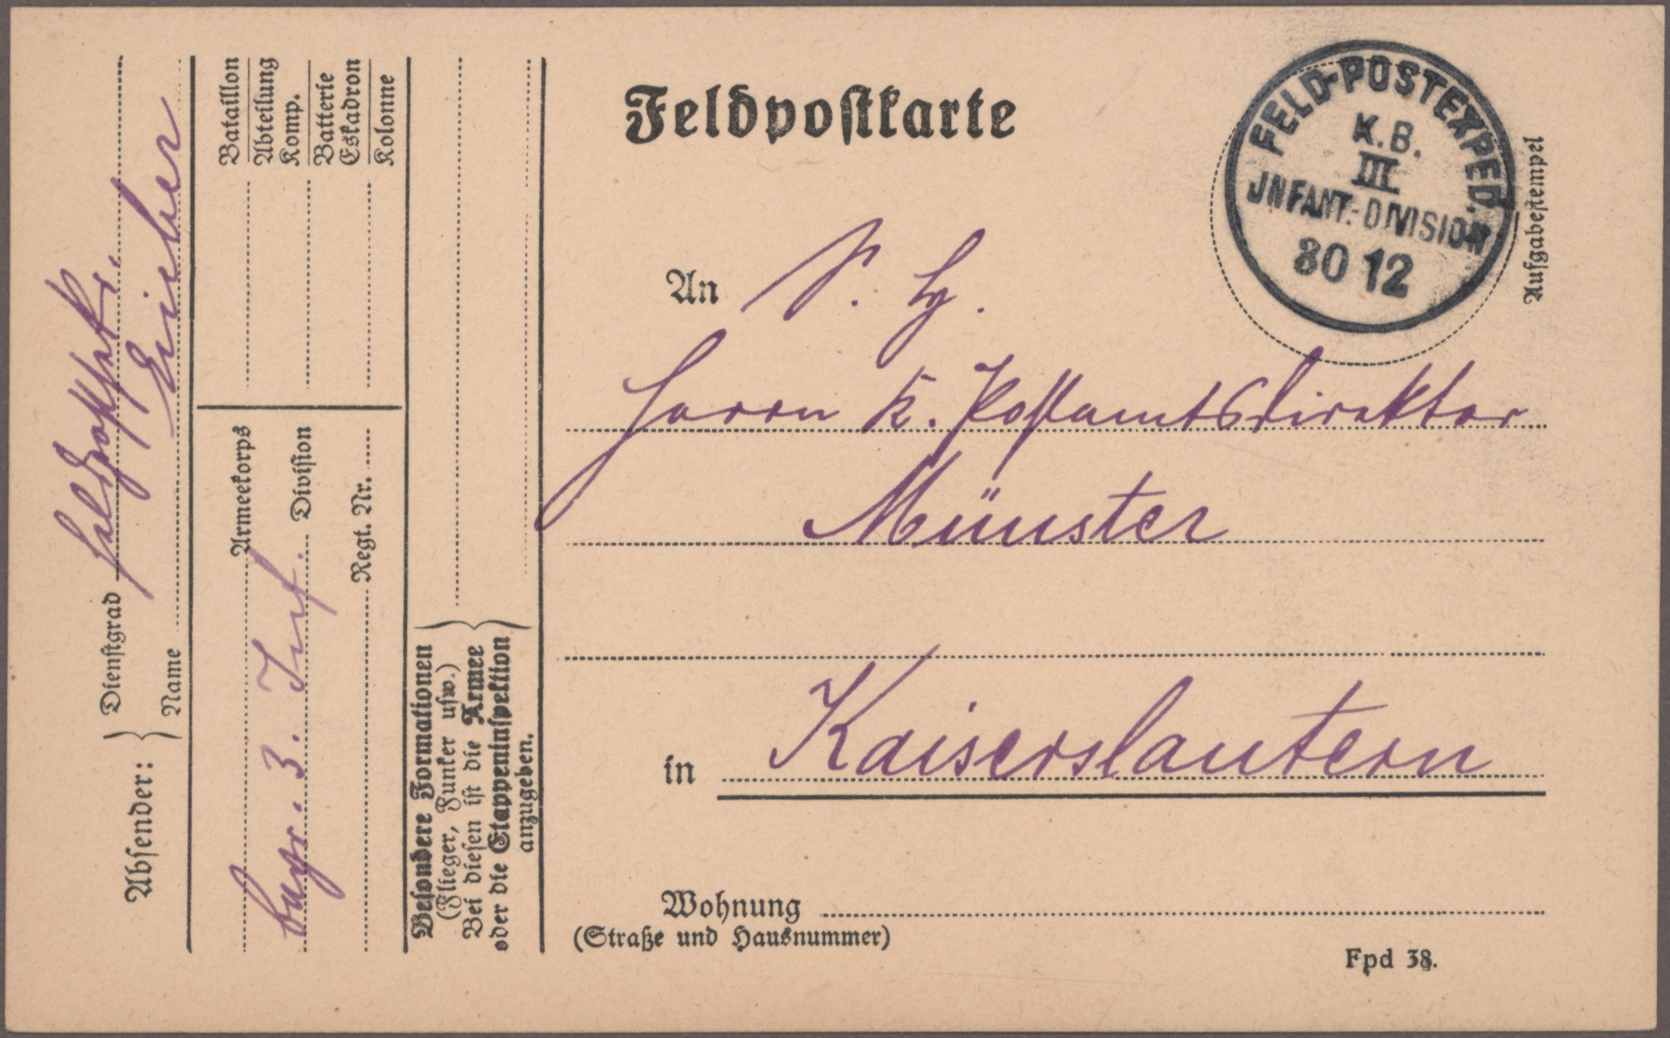 Feldpostkarte
FELD-POSTEXPED.
K.B.
III.
JNFANT.-DIVISION
30 12
Aufgabestempel
An S. Hg.
Herrn K. Postamtsdirektor
Münster
in Kaiserslautern
Wohnung
(Straße und Hausnummer)
Fpd 38.
Absender:
Dienstgrad
Name Eicher
Armeekorps
bayr. 3. Inf. Division
Regt. Nr.
Bataillon
Abteilung
Komp.
Batterie
Eskadron
Kolonne
Besondere Formationen
(Flieger, Funker usw.)
Bei diesen ist die Armee
oder die Etappeninspektion
anzugeben.